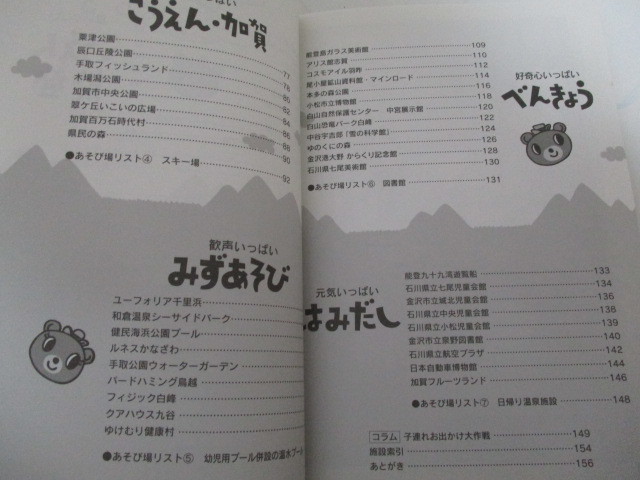 っぱい
こうえん・加賀
粟津公園
辰口丘陵公園 77
手取フィッシュランド 78
木場潟公園 80
加賀市中央公園 82
翠ケ丘いこいの広場 84
加賀百万石時代村 86
県民の森 88
90
●あそび場リスト④ スキー場
92
歓声いっぱい
みずあそび
ユーフォリア千里浜
和倉温泉シーサイドパーク
健民海浜公園プール
ルネスかなざわ
手取公園ウォーターガーデン
バードハミング鳥越
フィジック白峰
クアハウス九谷
ゆけむり健康村
●あそび場リスト⑤ 幼児用プール併設の温水プー
好奇心いっぱい
べんきょう
能登島ガラス美術館 109
アリス館志賀 110
コスモアイル羽咋 112
尾小屋鉱山資料館・マインロード 114
本多の森公園 116
小松市立博物館 118
白山自然保護センター 中宮展示館 120
白山恐竜パーク白峰 122
中谷宇吉郎「雪の科学館」 124
ゆのくにの森 126
金沢港大野 からくり記念館 128
石川県七尾美術館 130
●あそび場リスト⑥ 図書館 131
元気いっぱい
はみだし
能登九十九湾遊覧船 133
石川県立七尾児童会館 135
金沢市立城北児童会館 136
石川県立中央児童会館 138
石川県立小松児童会館 139
金沢市立泉野図書館 140
石川県立航空プラザ 142
日本自動車博物館 144
加賀フルーツランド 146
●あそび場リスト⑦ 日帰り温泉施設 148
コラム 子連れお出かけ大作戦 149
施設索引 154
あとがき 156